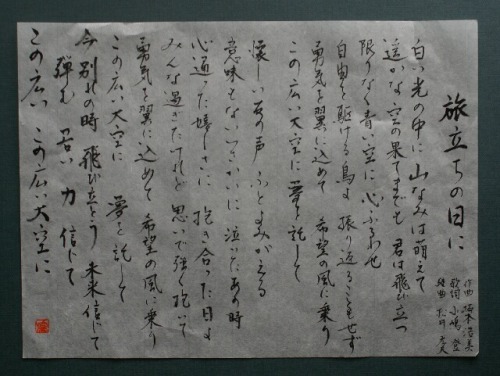 旅立ちの日に
作曲 坂本浩美
作詞 小嶋登
編曲 松井孝夫
白い光の中に 山なみは萌えて
遥かな空の果てまでも 君は飛び立つ
限りなく青い空に 心ふるわせ
自由を駆ける鳥よ 振り返ることもせず
勇気を翼に込めて 希望の風に乗り
この広い大空に 夢を託して
懐しい友の声 ふとよみがえる
意味もないいさかいに 泣いたあの時
心通った嬉しさに 抱き合った日よ
みんな過ぎたけれど 思いで強く抱いて
勇気を翼に込めて 希望の風に乗り
この広い大空に 夢を託して
今 別れの時 飛び立とう 未来信じて
弾む 若い 力 信じて
この広い この広い大空に